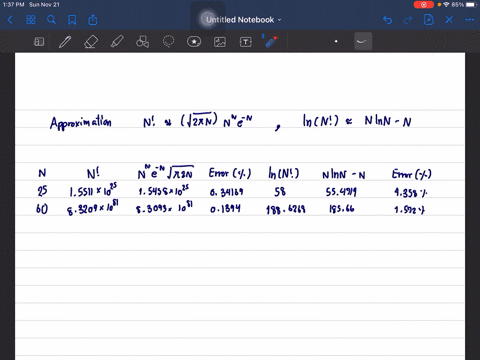 1:37 PM Sun Nov 21
85%
Untitled Notebook
Approximation N! ≈ (√2πN) N^N e^-N , ln(N!) ≈ N ln N - N
N N! N^N e^-N √π2N Error (%) ln(N!) N ln N - N Error (%)
25 1.5511 × 10^25 1.5458 × 10^25 0.34169 58 55.4719 4.358 %
60 8.3209 × 10^81 8.3093 × 10^81 0.1394 188.6268 185.66 1.572 %